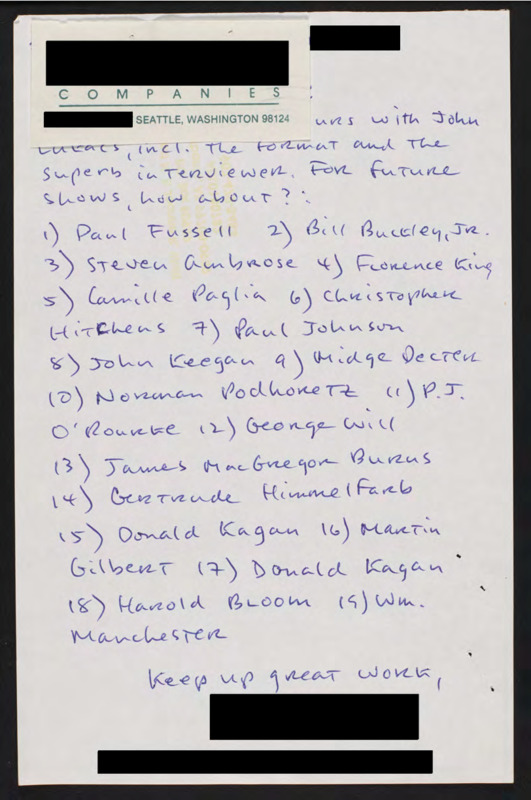 COMPANIES
SEATTLE, WASHINGTON 98124
with John
Lukacs, incl. the format and the
superb interviewer. For future
shows, how about?:
1) Paul Fussell 2) Bill Buckley, Jr.
3) Steven Ambrose 4) Florence King
5) Camille Paglia 6) Christopher
Hitchens 7) Paul Johnson
8) John Keegan 9) Midge Decter
10) Norman Podhoretz 11) P.J.
O'Rourke 12) George Will
13) James MacGregor Burns
14) Gertrude Himmelfarb
15) Donald Kagan 16) Martin
Gilbert 17) Donald Kagan
18) Harold Bloom 19) Wm.
Manchester
Keep up great work,